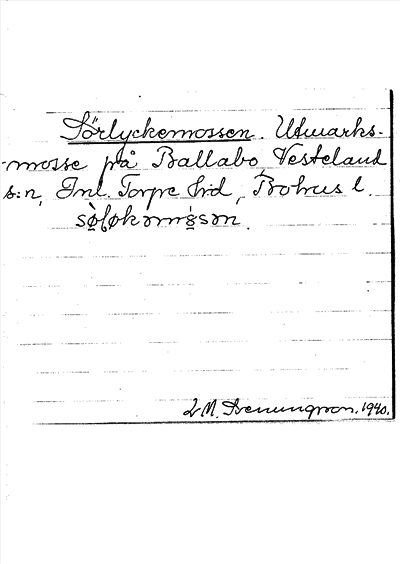 Sörlyckemossen. Utmarks-
-mosse på Ballabo, Vesteland
s:n, Inl. Torpe hrd, Bohus l.
L M. Svenungsson. 1940.